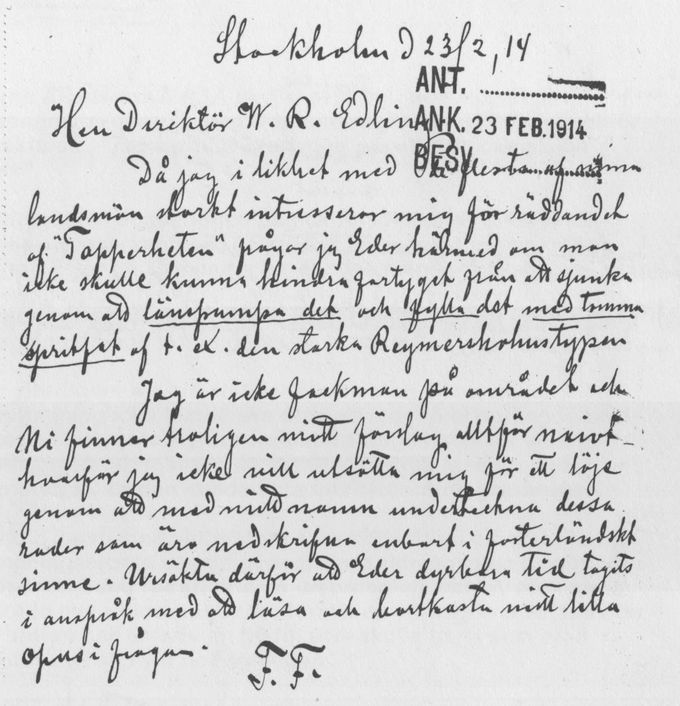 Stockholm d 23/2, 14
ANT.
Herr Direktör W. R. Edlin
ANK. 23 FEB. 1914
BESV.
Då jag i likhet med de flesta af mina
landsmän starkt intresserar mig för räddandet
af "Tapperheten" frågar jag Eder härmed om man
icke skulle kunna hindra fartyget från att sjunka
genom att länspumpa det och fylla det med tomma
spritfat af t. ex. den starka Reymersholmstypen
Jag är icke fackman på området och
Ni finner troligen mitt förslag alltför naivt
hvarför jag icke vill utsätta mig för ett löje
genom att med mitt namn underteckna dessa
rader som äro nedskrifna enbart i fosterländskt
sinne. Ursäkta därför att Eder dyrbara tid tagits
i anspråk med att läsa och bortkasta mitt lilla
opus i frågan.
F. F.